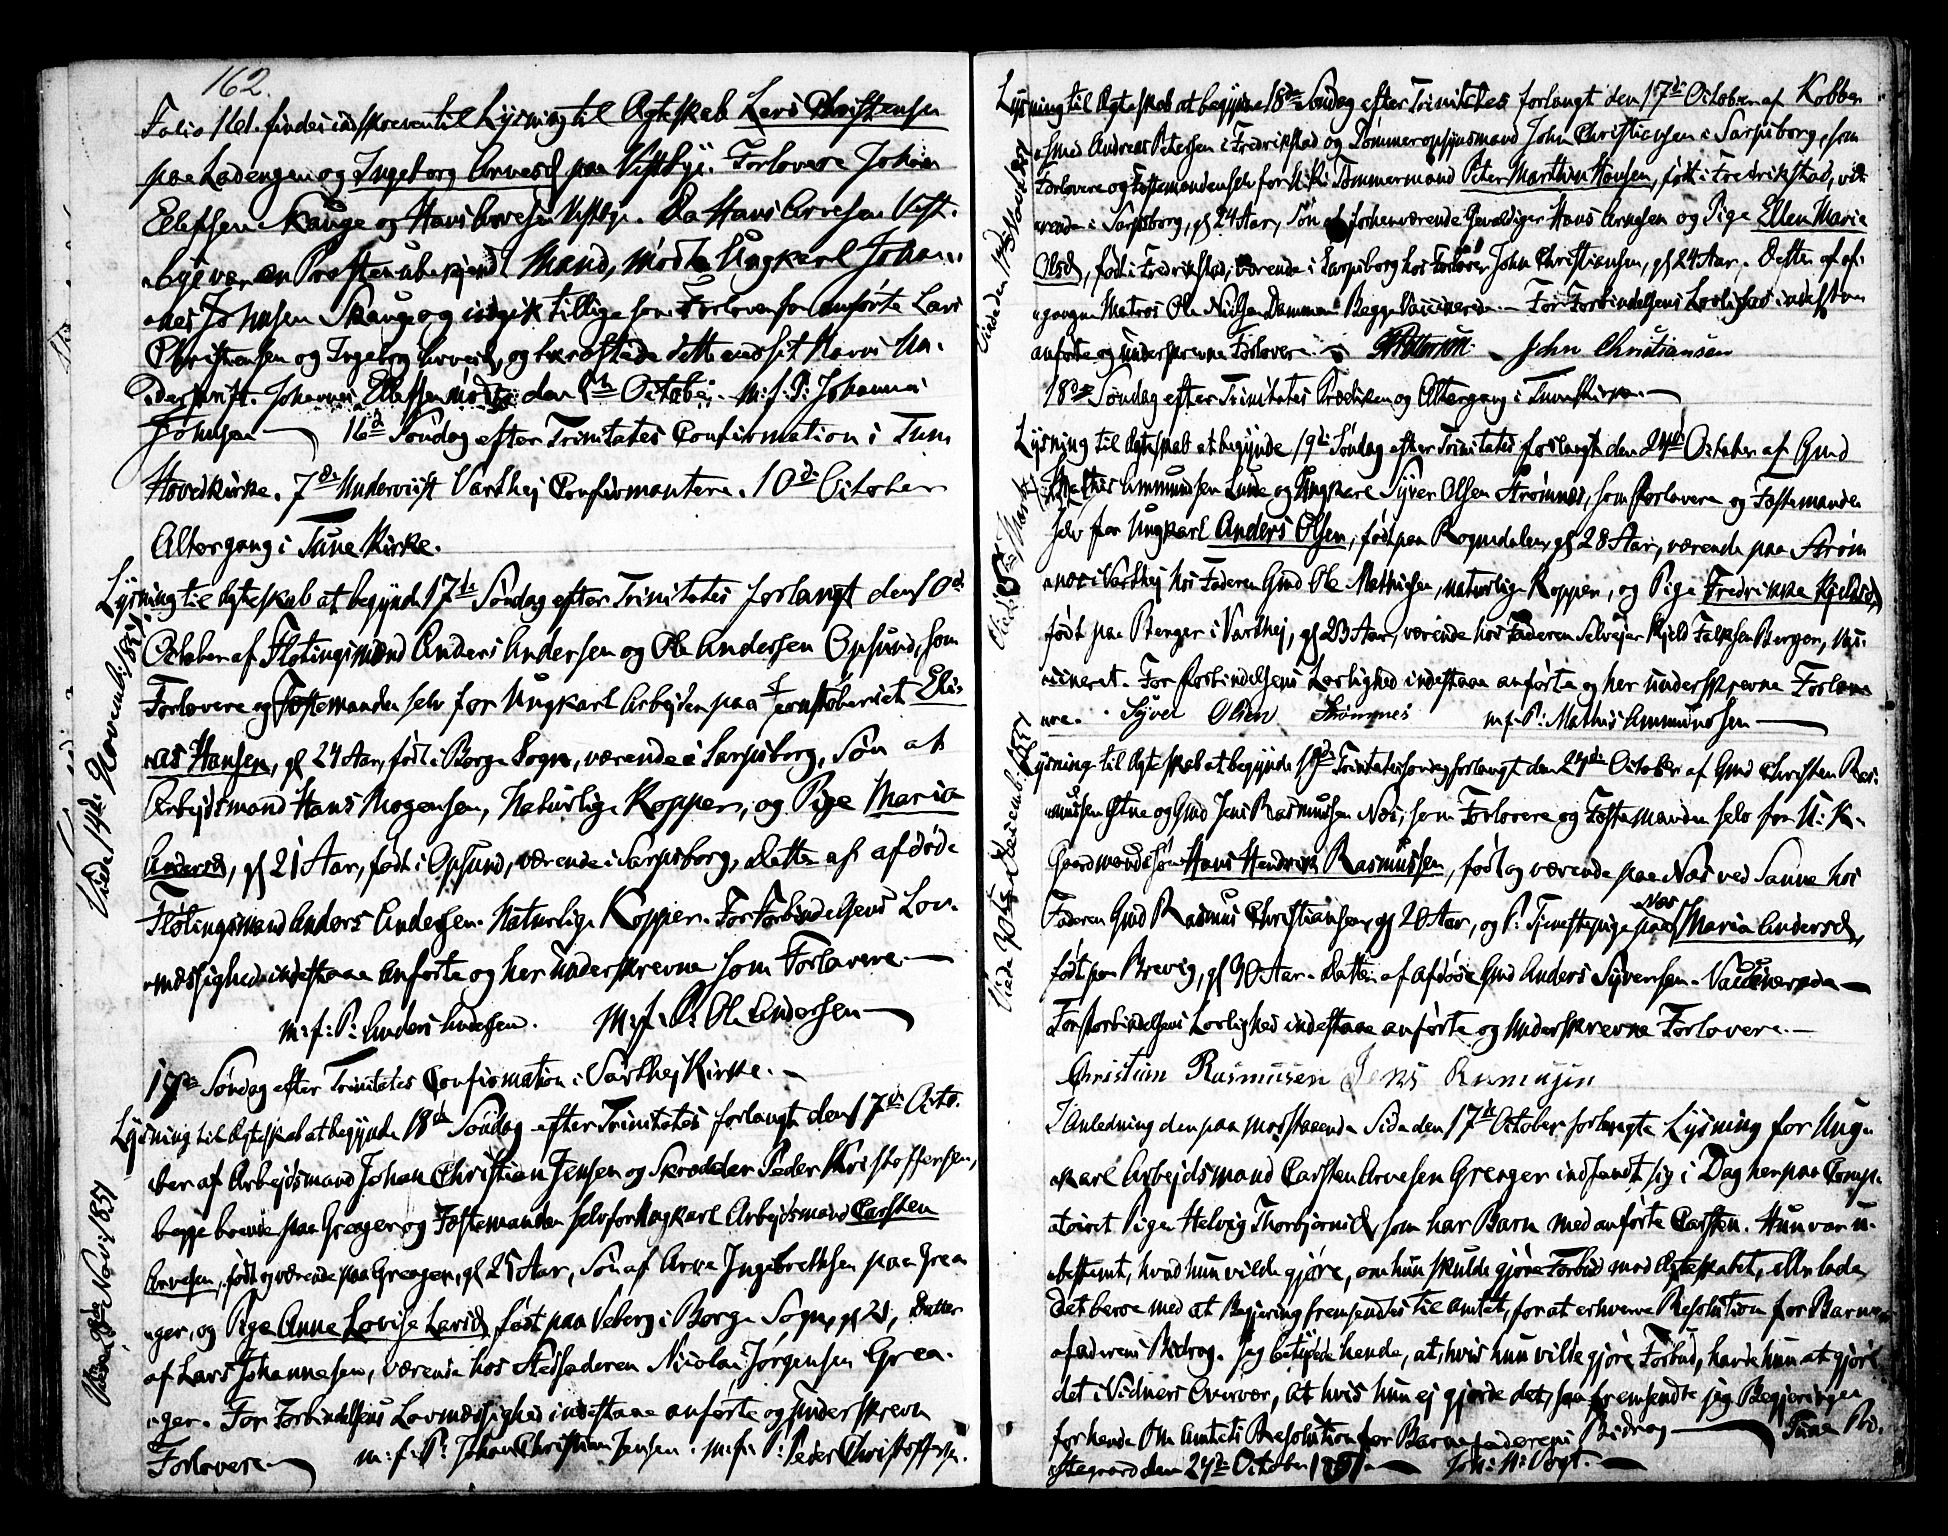 162.
Folio 161. findes indskreven til Lysning til Ægteskab Lars Christensen
paa Ladengen og Ingeborg Arnesd paa Vistbye. Forlovere Johan
Ellefsen Skauge og Hans Arnesen Vistbye. Da Hans Arnesen Vist-
bye var en Præsten ubekjendt Mand, mødte Ungkarl Johan-
nes Johnsen Skauge og indgik tillige som Forlover for anførte Lars
Christensen og Ingeborg Arnesd, og bekræftede dette med sit Navns Un-
derskrift. Johannes Ellefsen mødte den 8de October. m: f: P: Johannes
Johnsen — 16de Søndag efter Trinitatis Confirmation i Tune
Hovedkirke. 7de Underviist Varthej Confirmantere. 10de October
Altergang i Tune Kirke.
Lysning til Ægteskab at begynde 17de Søndag efter Trinitatis forlangt den 10de
October af Fløtingsmænd Anders Andersen og Ole Andersen Opsund, som
Forlovere og Fæstemanden selv for Ungkarl Arbejder paa Jernstøberiet Eli-
as Hansen, gl 24 Aar, født i Borge Sogn, værende i Sarpsborg, Søn af
Arbejdsmand Hans Mogensen, Naturlige Kopper, og Pige Maria
Andersd, gl 21 Aar, født i Opsund, værende i Sarpsborg, Datter af afdøde
Fløtingsmand Anders Andersen. Naturlige Kopper. For Forbindelsens Lov-
mæssighed indestaae anførte og her underskrevne som Forlovere. —
m: f: P: Anders Andersen. m: f: P: Ole Andersen —
Viede 14de Novembr 1851.
17de Søndag efter Trinitatis Confirmation i Varthej Kirke. —
Lysning til Ægteskab at begynde 18de Søndag efter Trinitatis forlangt den 17de Octo-
ber af Arbejdsmand Johan Christian Jensen og Skrædder Peder Christoffersen,
begge boende paa Greager og Fæstemanden selv for Ungkarl Arbejdsmand Carsten
Arnesen, født og værende paa Greager, gl 25 Aar, Søn af Arne Ingebrethsen paa Grea
ger, og Pige Anne Lovise Larsd, født paa Veberg i Borge Sogn, gl 28, Datter
af Lars Johannesen, værende hos Stedfaderen Nicolai Jørgensen Grea-
ger. For Forbindelsens Lovmæssighed indestaae anførte og underskrevne
Forlovere. — m: f: P: Johan Christian Jensen. m: f: P: Peder Christoffersen.
Novbr 1851
Lysning til Ægteskab at begynde 18de Søndag efter Trinitatis forlangt den 17de October af Kobber
smed Andreas Petersen i Fredrikstad og Tømmeropsynsmand John Christiansen i Sarpsborg, som
Forlovere og Fæstemanden selv for Tømmermand Peter Marthin Hansen, født i Fredrikstad, væ-
rende i Sarpsborg, gl 24 Aar, Søn af forhenværende Gevaldiger Hans Arnesen og Pige Ellen Marie
Olsd, født i Fredrikstad, værende i Sarpsborg hos Forlover John Christiansen, gl 24 Aar. Datter af af-
gangne Matros Ole Nielsen Dammen. Begge Vaccinerede. — For Forbindelsens Lovlighed indestaae
anførte og underskrevne Forlovere. — A Petterson. John Christiansen
Viede den 14de Novbr 1851
18de Søndag efter Trinitatis Prædiken og Altergang i Tune Kirke. —
Lysning til Ægteskab at begynde 19de Søndag efter Trinitatis forlangt den 24de October af Gmd
Mathis Ammundsen Lunde og Ungkarl Syver Olsen Strømnes, som Forlovere og Fæstemanden
selv for Ungkarl Anders Olsen, født paa Rognedalen, gl 28 Aar, værende paa Strøm
nes i Varthej hos Faderen Gmd Ole Mathisen, naturlige Kopper, og Pige Fredrikke Kjeldsd,
født paa Berger i Varthej, gl 23 Aar, værende hos Faderen Selvejer Kjeld Falksen Berger, Vac-
cineret. For Forbindelsens Lovlighed indestaae anførte og her underskrevne Forlove
rere. Syver Olsen Strømnes m: f: P: Mathis Ammundsen —
Lysning til Ægteskab at begynde 19de Trinitatissøndag forlangt den 24de October af Gmd Christen Ras-
mussen Øtne og Gmd Jens Rasmussen Næs, som Forlovere og Fæstemanden selv for U: K:
Gaardmandssøn Hans Hendrich Rasmussen, født og værende paa Næs ved Sanne hos
Faderen Gmd Rasmus Christiansen, gl 20 Aar, og P: Tjenestepige paa Næs Maria Andersd,
født paa Brevig, gl 30 Aar. Datter af afdøde Gmd Anders Syversen. Vaccinerede —
For Forbindelsens Lovlighed indestaae anførte og underskrevne Forlovere. —
Christian Rasmusen Jens Rasmusen
Viede Decemb: 1851
I Anledning den paa modstaaende Side den 17de October forlangte Lysning for Ung-
karl Arbejdsmand Carsten Arnesen Greager indfandt sig i Dag her paa Comp-
toiret Pigen Helvig Thorbjørnsd, som har Barn med anførte Carsten. Hun var u-
bestemt, hvad hun vilde gjøre, om hun skulde gjøre Forbud mod Ægteskabet, eller lade
det beroe med at Begjering fremsendtes til Amtet, for at erhverve Resolution for Barne-
faderens Bidrag. Jeg betydede hende, at, hvis hun vilde gjøre Forbud, havde hun at gjøre
det i Vidners Overvær, at hvis hun ej gjorde det, saa fremsendte jeg Begjeringen
for hende om Amtets Resolution for Barnefaderens Bidrag — Tune Præ-
stegaard den 24de October 1851 — Joh: N: Vogt. —